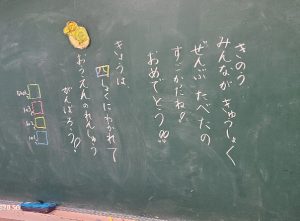 きのう
みんなが きゅうしょく
ぜんぶたべたの
すごかだね!
おめでとう!!
きょうは、
四しょくにわかれて
おうえんのれんしゅう
がんばろう!